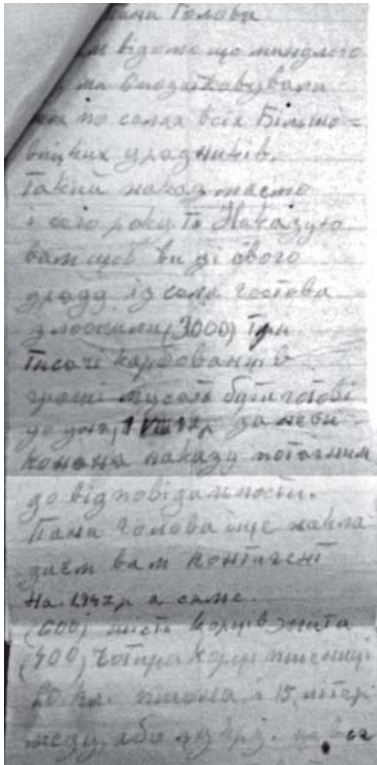 Пани Голова
вам відомо що минулого
ми оподатковували
по селах всіх Більшо=
вицких урядників.
Такий наказ маємо
і сего року то Наказую
вам щоб ви зі свого
уряду із села
зложили (3000) три
тисячі карбованців
гроші мусять бути готові
до дня, 1 VIII 47р за неви-
конана наказу потягним
до відповідамности.
Пана Голова іще накла
даєм вам контигент
На. 1947 р а саме.
(600) шість корців жита
(400) Чотири корци пшениці
20 кл. пшона і 15 літер
меду або цукру.